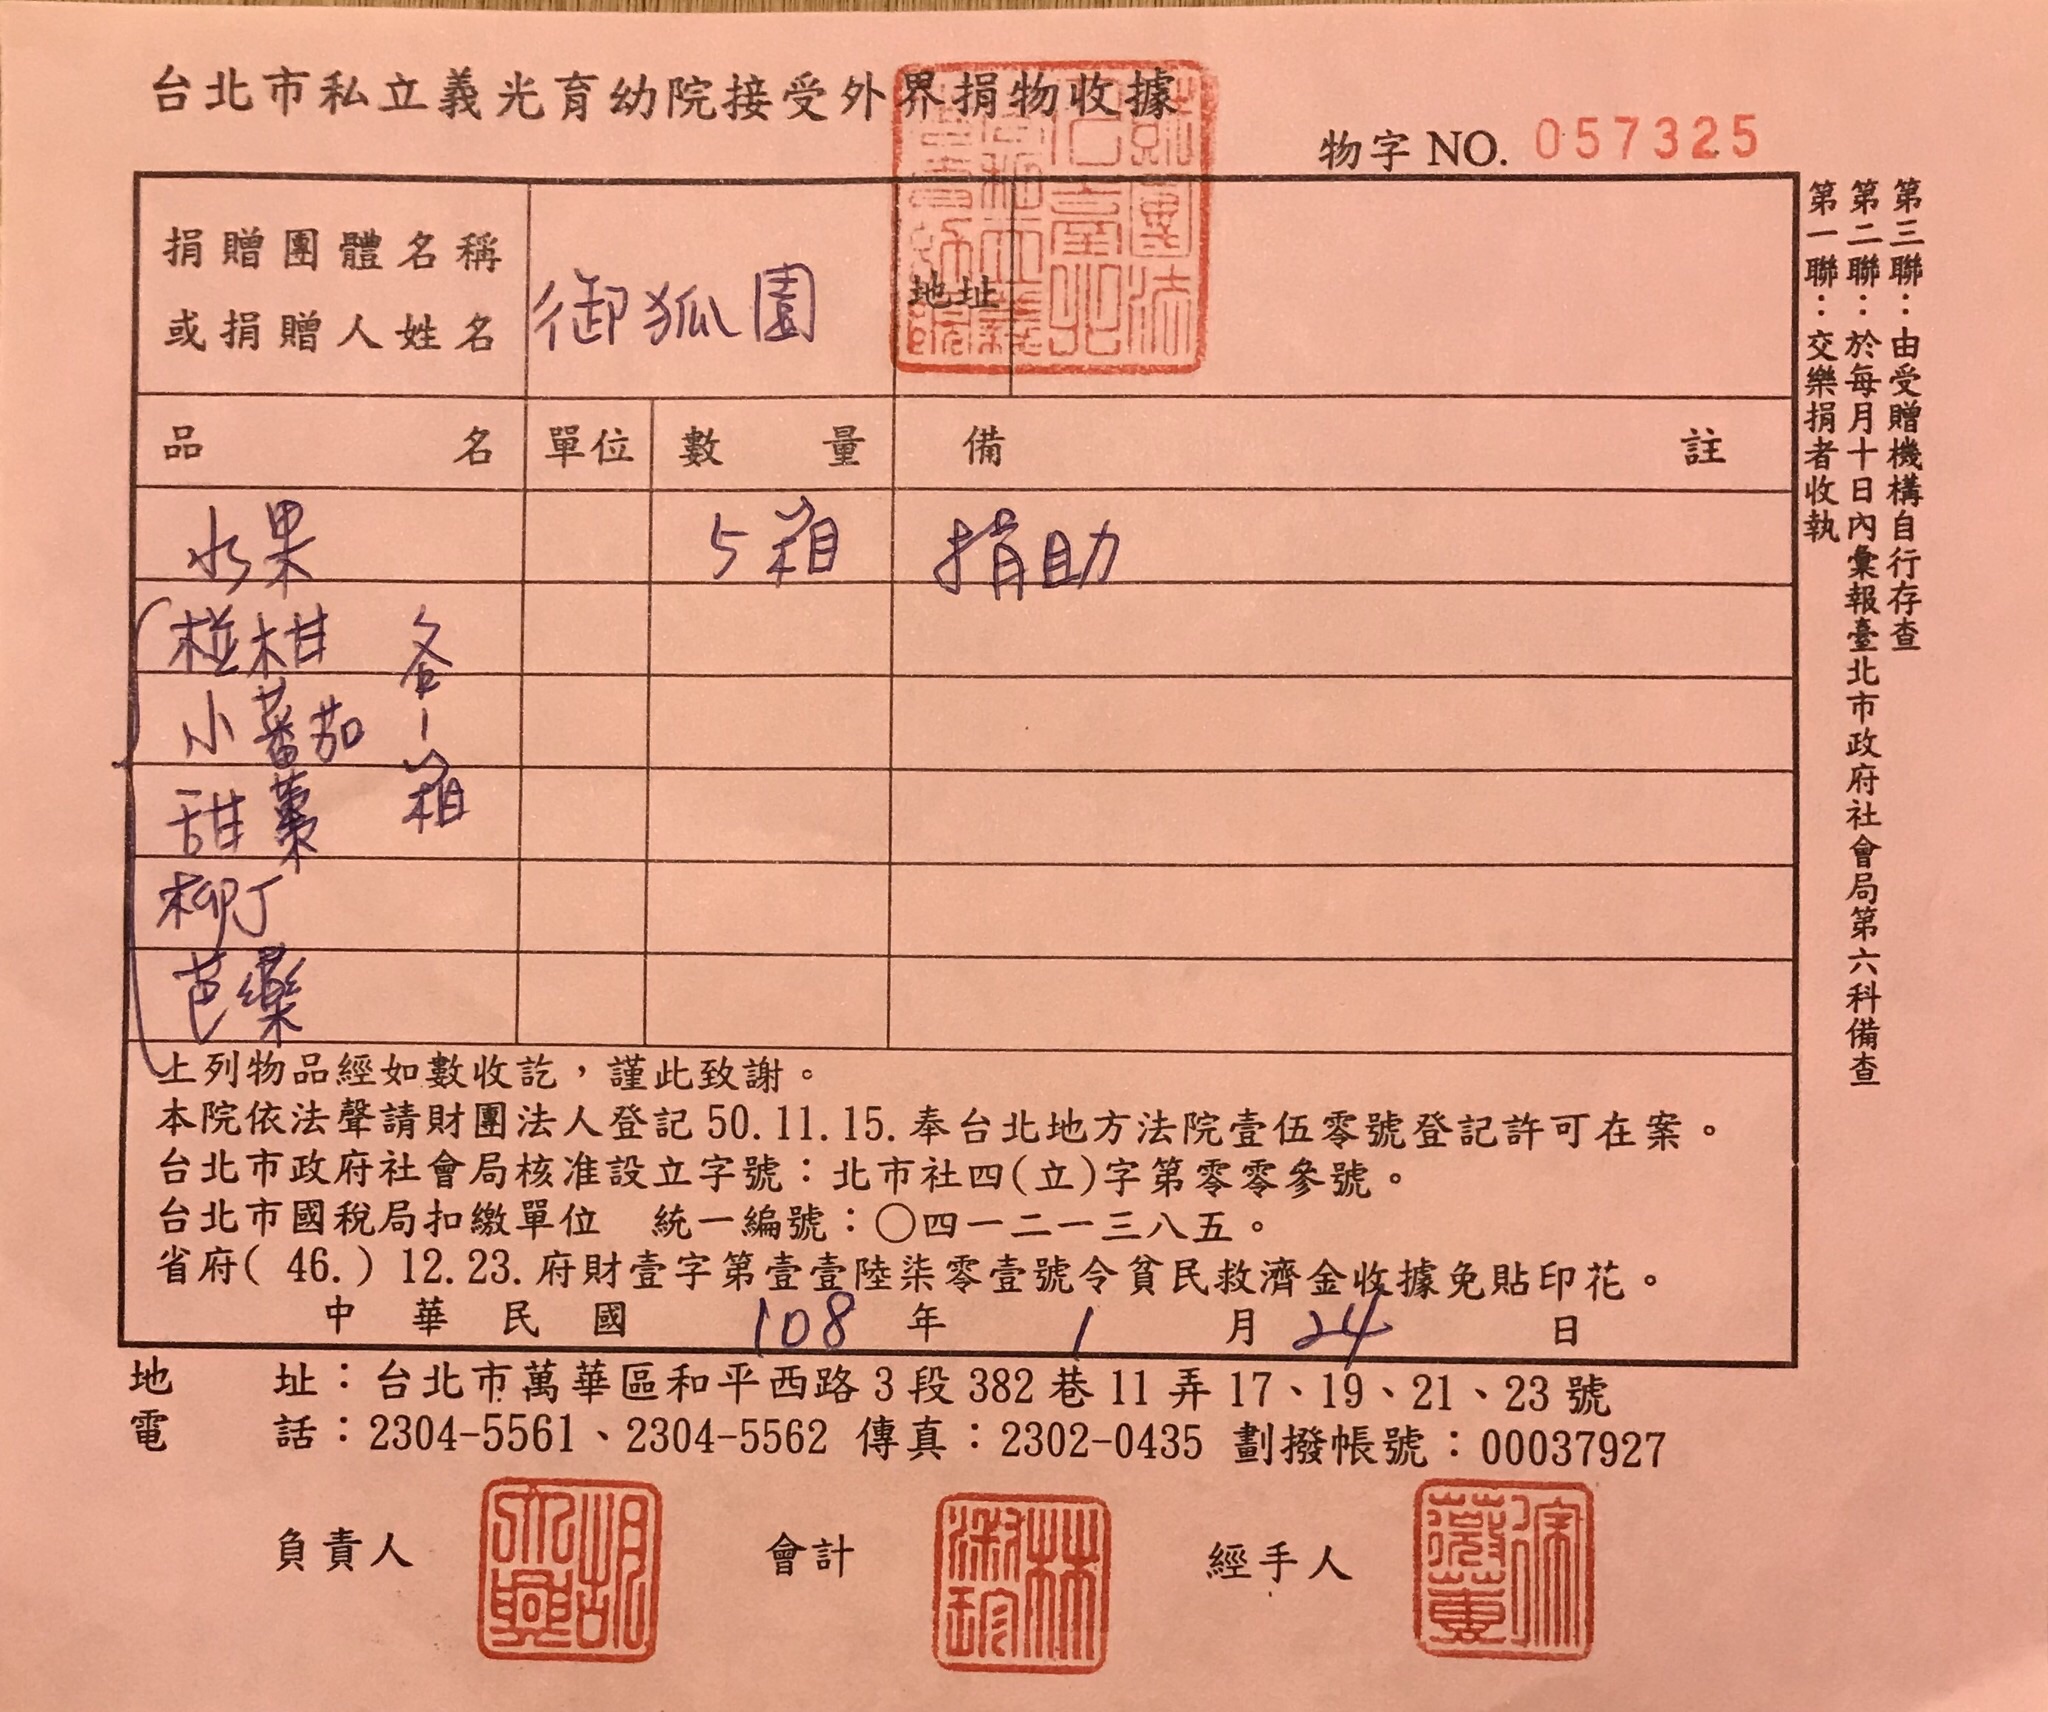 台北市私立義光育幼院接受外界捐物收據
物字 NO. 057325
捐贈團體名稱
或捐贈人姓名
御狐園
地址
品名 單位 數量 備註
水果 5箱 捐助
椪柑
小蕃茄
甜棗
柳丁
芭樂
各1箱
上列物品經如數收訖，謹此致謝。
本院依法聲請財團法人登記50.11.15.奉台北地方法院壹伍零號登記許可在案。
台北市政府社會局核准設立字號：北市社四(立)字第零零參號。
台北市國稅局扣繳單位 統一編號：○四一二一三八五。
省府( 46.) 12.23.府財壹字第壹壹陸柒零壹號令貧民救濟金收據免貼印花。
中華民國 108 年 1 月 24 日
地址：台北市萬華區和平西路3段382巷11弄17、19、21、23號
電話：2304-5561、2304-5562 傳真：2302-0435 劃撥帳號：00037927
負責人 會計 經手人
第一聯：交樂捐者收執
第二聯：於每月十日內彙報臺北市政府社會局第六科備查
第三聯：由受贈機構自行存查